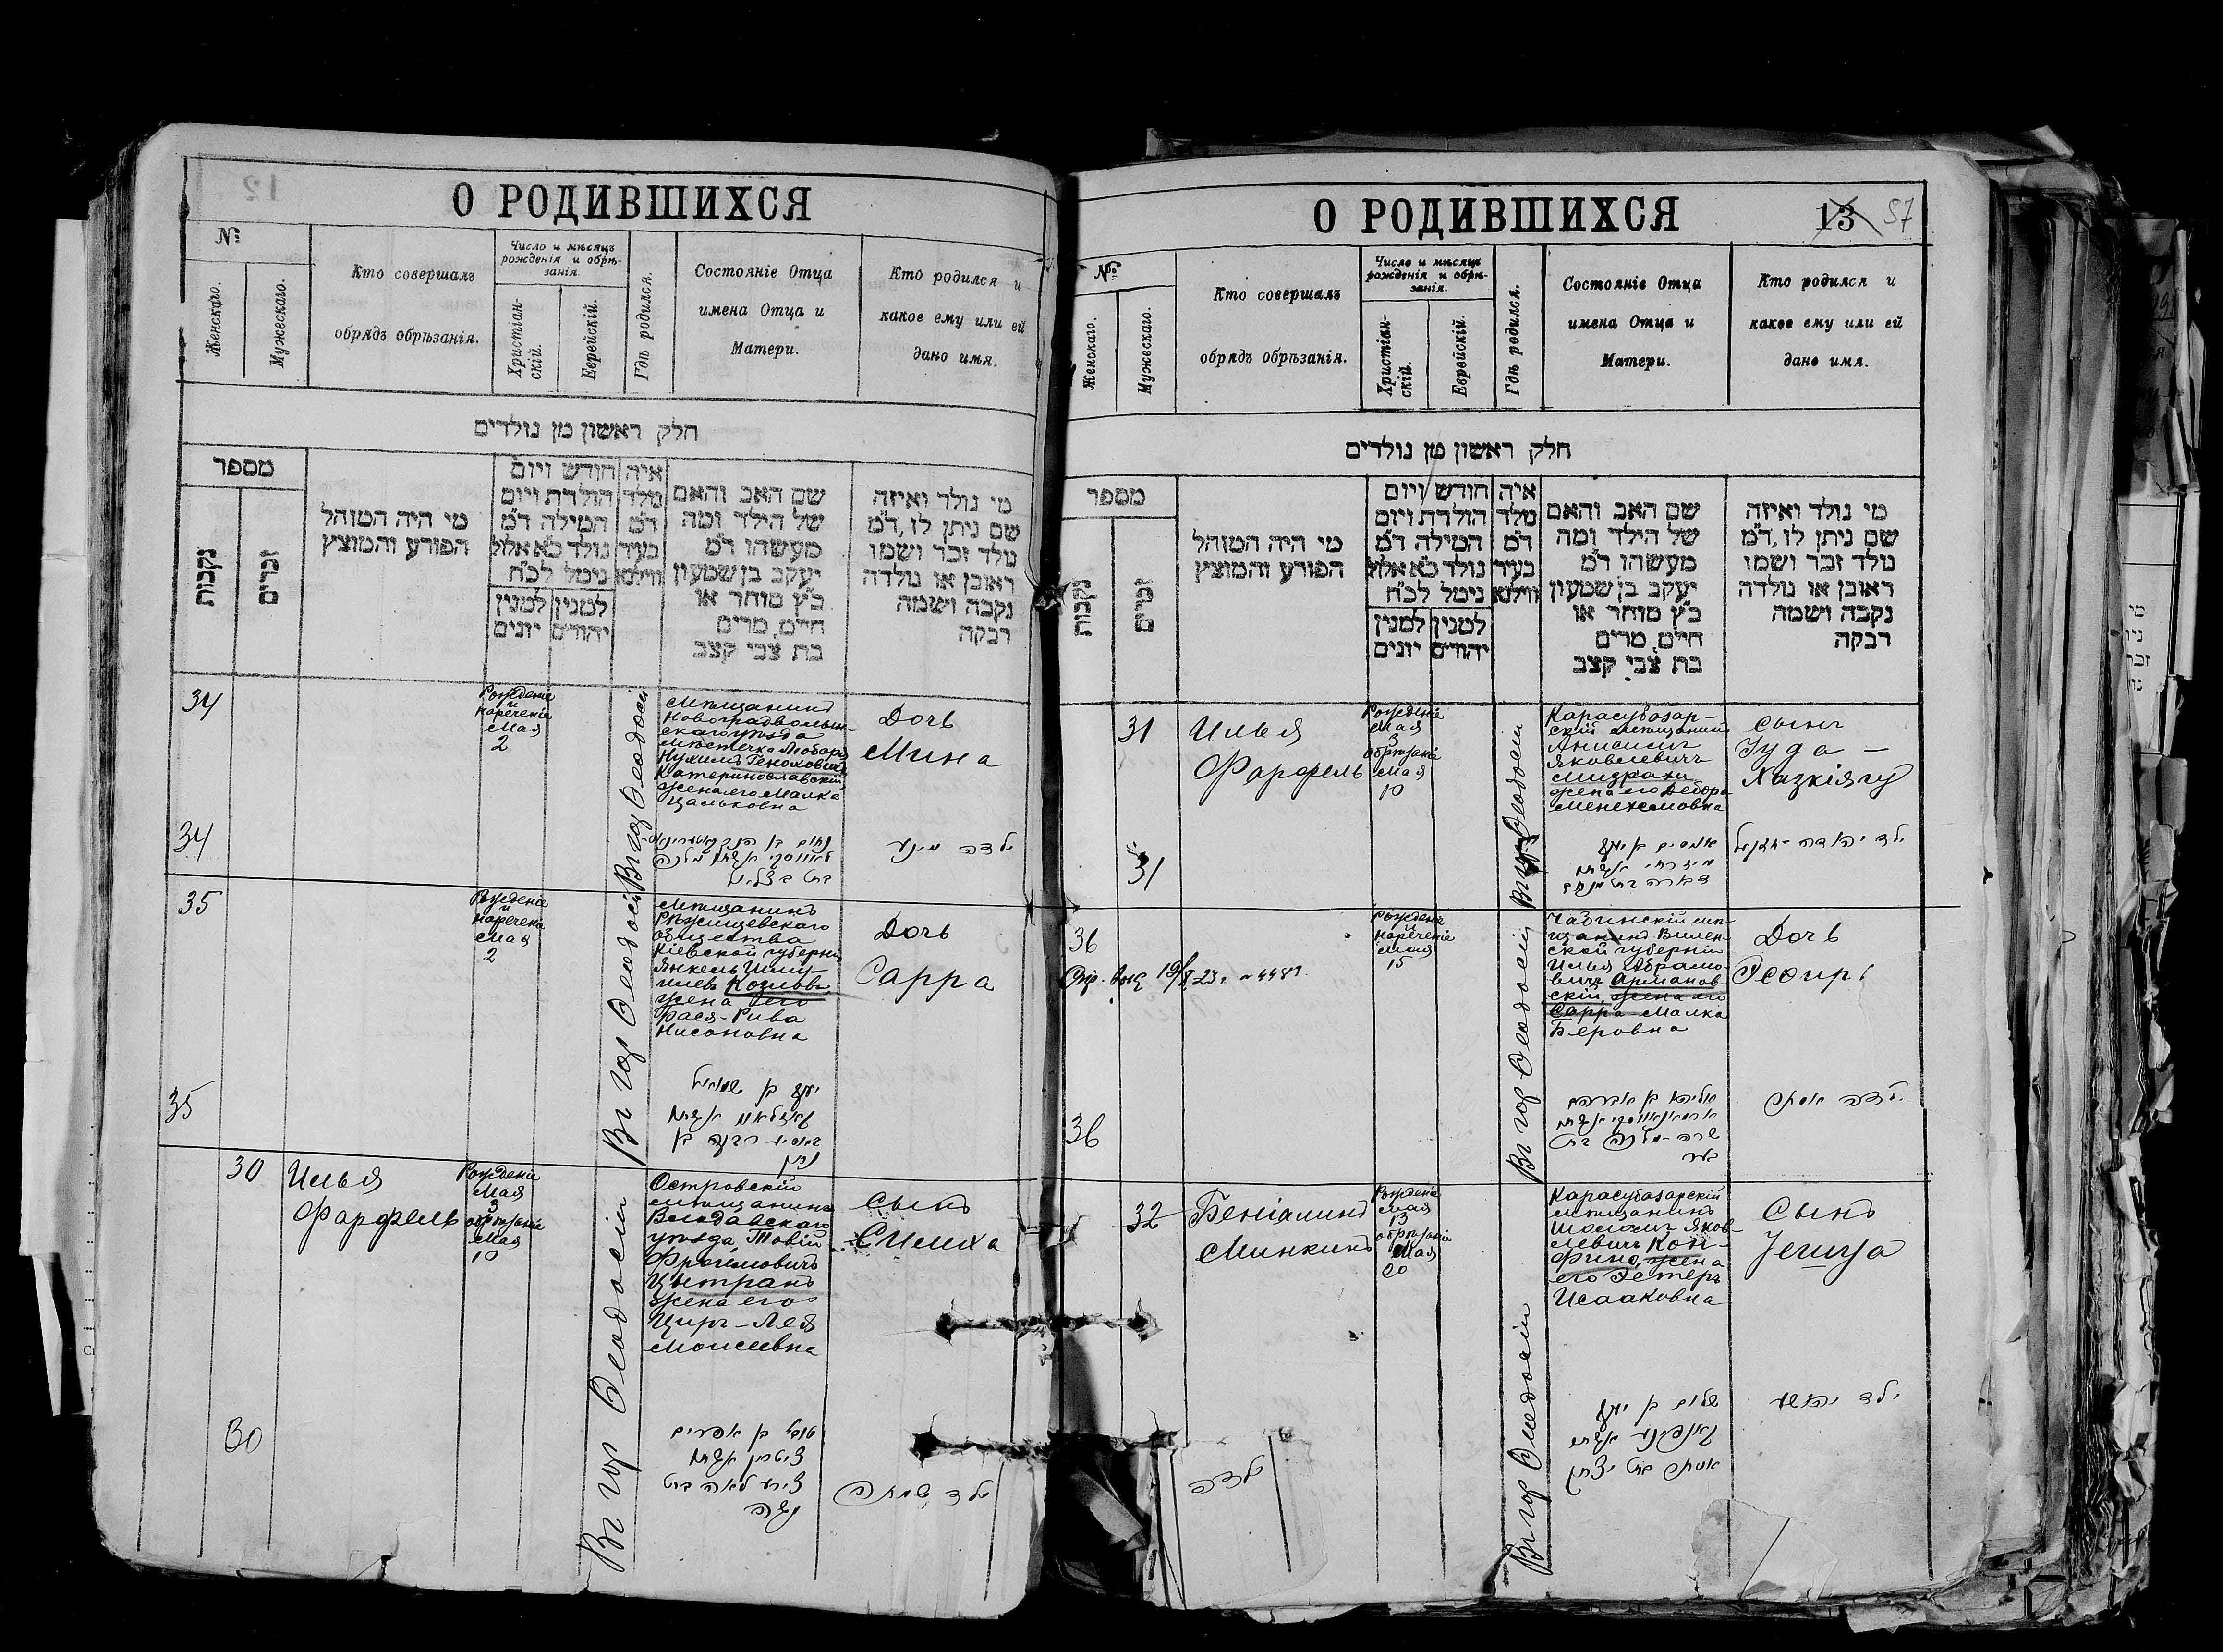 О РОДИВШИХСЯ
№
Женскаго.
Мужескаго.
Кто совершалъ
обрядъ обрѣзанія.
Число и мѣсяцъ
рожденія и обрѣ-
занія.
Христіан-
скій.
Еврейскій.
Гдѣ родился.
Состояніе Отца
имена Отца и
Матери.
Кто родился и
какое ему или ей
дано имя.
חלק ראשון מן נולדים
מספר
נקבות
זכרים
מי היה המוהל
הפורע והמוצץ
חודש ויום
הולדת ויום
המילה ד״מ
נולד כ״א אלול
ניטל לכ״ח
למנין למנין
יהודים יונים
איה
מלד
ד״מ
בעיר
ווילנא
שם האב והאם
של הילד ומה
מעשהו ד״מ
יעקב בן שמעון
כ״ץ סוחר או
חי״ט, מרים
בת צבי קצב
מי נולד ואיזה
שם ניתן לו, ד״מ
נולד זכר ושמו
ראובן או נולדה
נקבה ושמה
רבקה
34
Рожденіе
и
нареченіе
Мая
2
Въ гор Ѳеодосіи
Мѣщанинъ
Новоградволын-
скаго уѣзда
Мѣстечка Любара
Нухимъ Геноховичъ
Катеринославскій
жена его Малка
Цальковна
Дочь
Мина
34
ילדה מינע
35
Рожденіе
и
наречено
Мая
2
Въ гор Ѳеодосіи
Мѣщанинъ
Ржищевскаго
общества
Кіевской губерніи
Янкель Шму-
илевъ Козловъ,
жена его
Фася-Рива
Нисоновна
Дочь
Сарра
35
יעקב בן שמואל
30
Илья
Фарфель
Рожденіе
Мая
3
обрѣзаніе
Мая
10
Въ гор Ѳеодосіи
Островскій
мѣщанинъ
Влодавскаго
уѣзда Товій
Фроимовичъ
Цитранъ
жена его
Циръ-Лея
Моисеевна
Сынъ
Симха
30
טובי בן אפרים
ציטרין אשתו
צירע לאה בת
משה
ילד שמחה
О РОДИВШИХСЯ
13 57
№
Женскаго.
Мужескаго.
Кто совершалъ
обрядъ обрѣзанія.
Число и мѣсяцъ
рожденія и обрѣ-
занія.
Христіан-
скій.
Еврейскій.
Гдѣ родился.
Состояніе Отца
имена Отца и
Матери.
Кто родился и
какое ему или ей
дано имя.
חלק ראשון מן נולדים
מספר
נקבות
זכרים
מי היה המוהל
הפורע והמוצץ
חודש ויום
הולדת ויום
המילה ד״מ
נולד כ״א אלול
ניטל לכ״ח
למנין למנין
יהודים יונים
איה
מלד
ד״מ
בעיר
ווילנא
שם האב והאם
של הילד ומה
מעשהו ד״מ
יעקב בן שמעון
כ״ץ סוחר או
חי״ט, מרים
בת צבי קצב
מי נולד ואיזה
שם ניתן לו, ד״מ
נולד זכר ושמו
ראובן או נולדה
נקבה ושמה
רבקה
31
Илья
Фарфель
Рожденіе
Мая
3
обрѣзаніе
Мая
10
Въ гор Ѳеодосіи
Карасубазар-
скій мѣщанинъ
Анисимъ
Яковлевичъ
Мизрахи
жена его Дебора
Менехемовна
Сынъ
Іуда -
Хазкіягу
31
36
Рожденіе
и
нареченіе
Мая
15
Въ гор Ѳеодосіи
мѣ-
щанинъ Вилен-
ской губерніи
Илья Абрамо-
вичъ Армановъ-
скій, жена его
Сарра-Малка
Беровна
Дочь
Эсѳирь
36
אליהו בן אברהם
ארמאנאווסקי אשתו
שרה-מלכה בת
בער
ילדה אסתר
32
Беніаминъ
Минкинъ
Рожденіе
Мая
13
обрѣзаніе
Мая
20
Въ гор Ѳеодосіи
Карасубазарскій
мѣщанинъ
Шоломъ Яков-
левичъ Кон-
фино, жена
его Эстеръ
Исааковна
Сынъ
Іешуа
שלום בן יעקב
קאנפינע אשתו
אסתר בת יצחק
ילד יהושע
ילדה